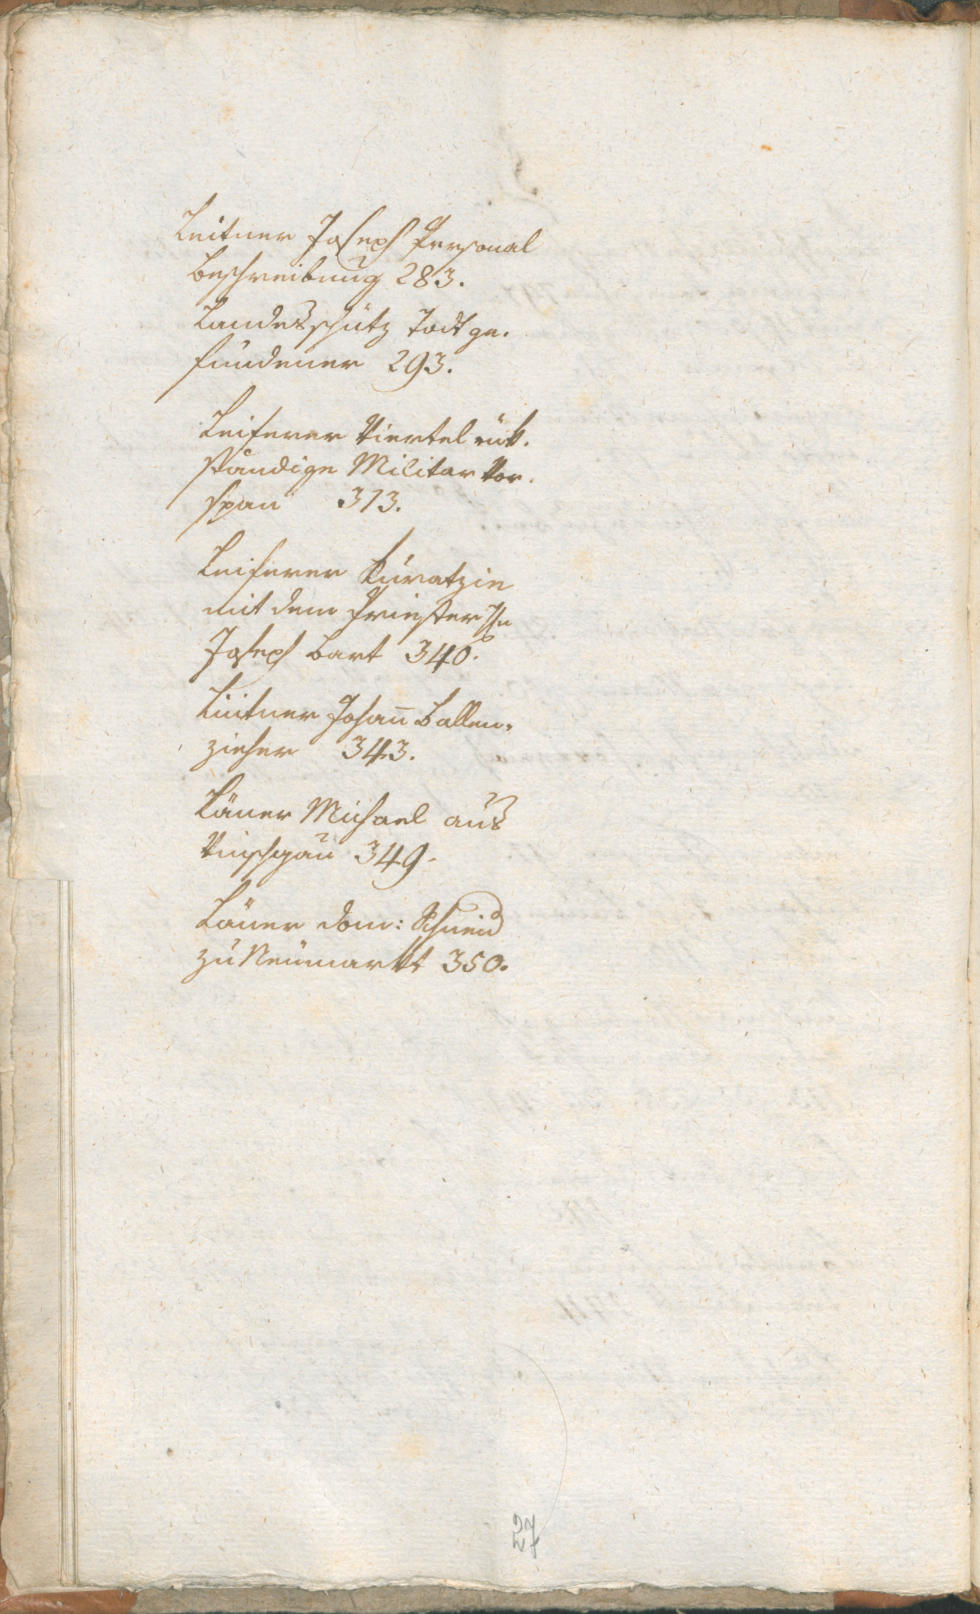 Leitner Joseph Personal
Beschreibung 283.
Landesschütz Todt ge-
fundener 293.
Leiferer Viertel rük-
ständige Militar Vor-
span 313.
Leiferer Kuratzie
mit dem Priester Hn
Joseph Bart 340.
Leitner Johan̄ Ballen-
zieher 343.
Läner Michael aus
Vinschgau 349.
Läner Dom: Schneid
zu Neumarkt 350.
27